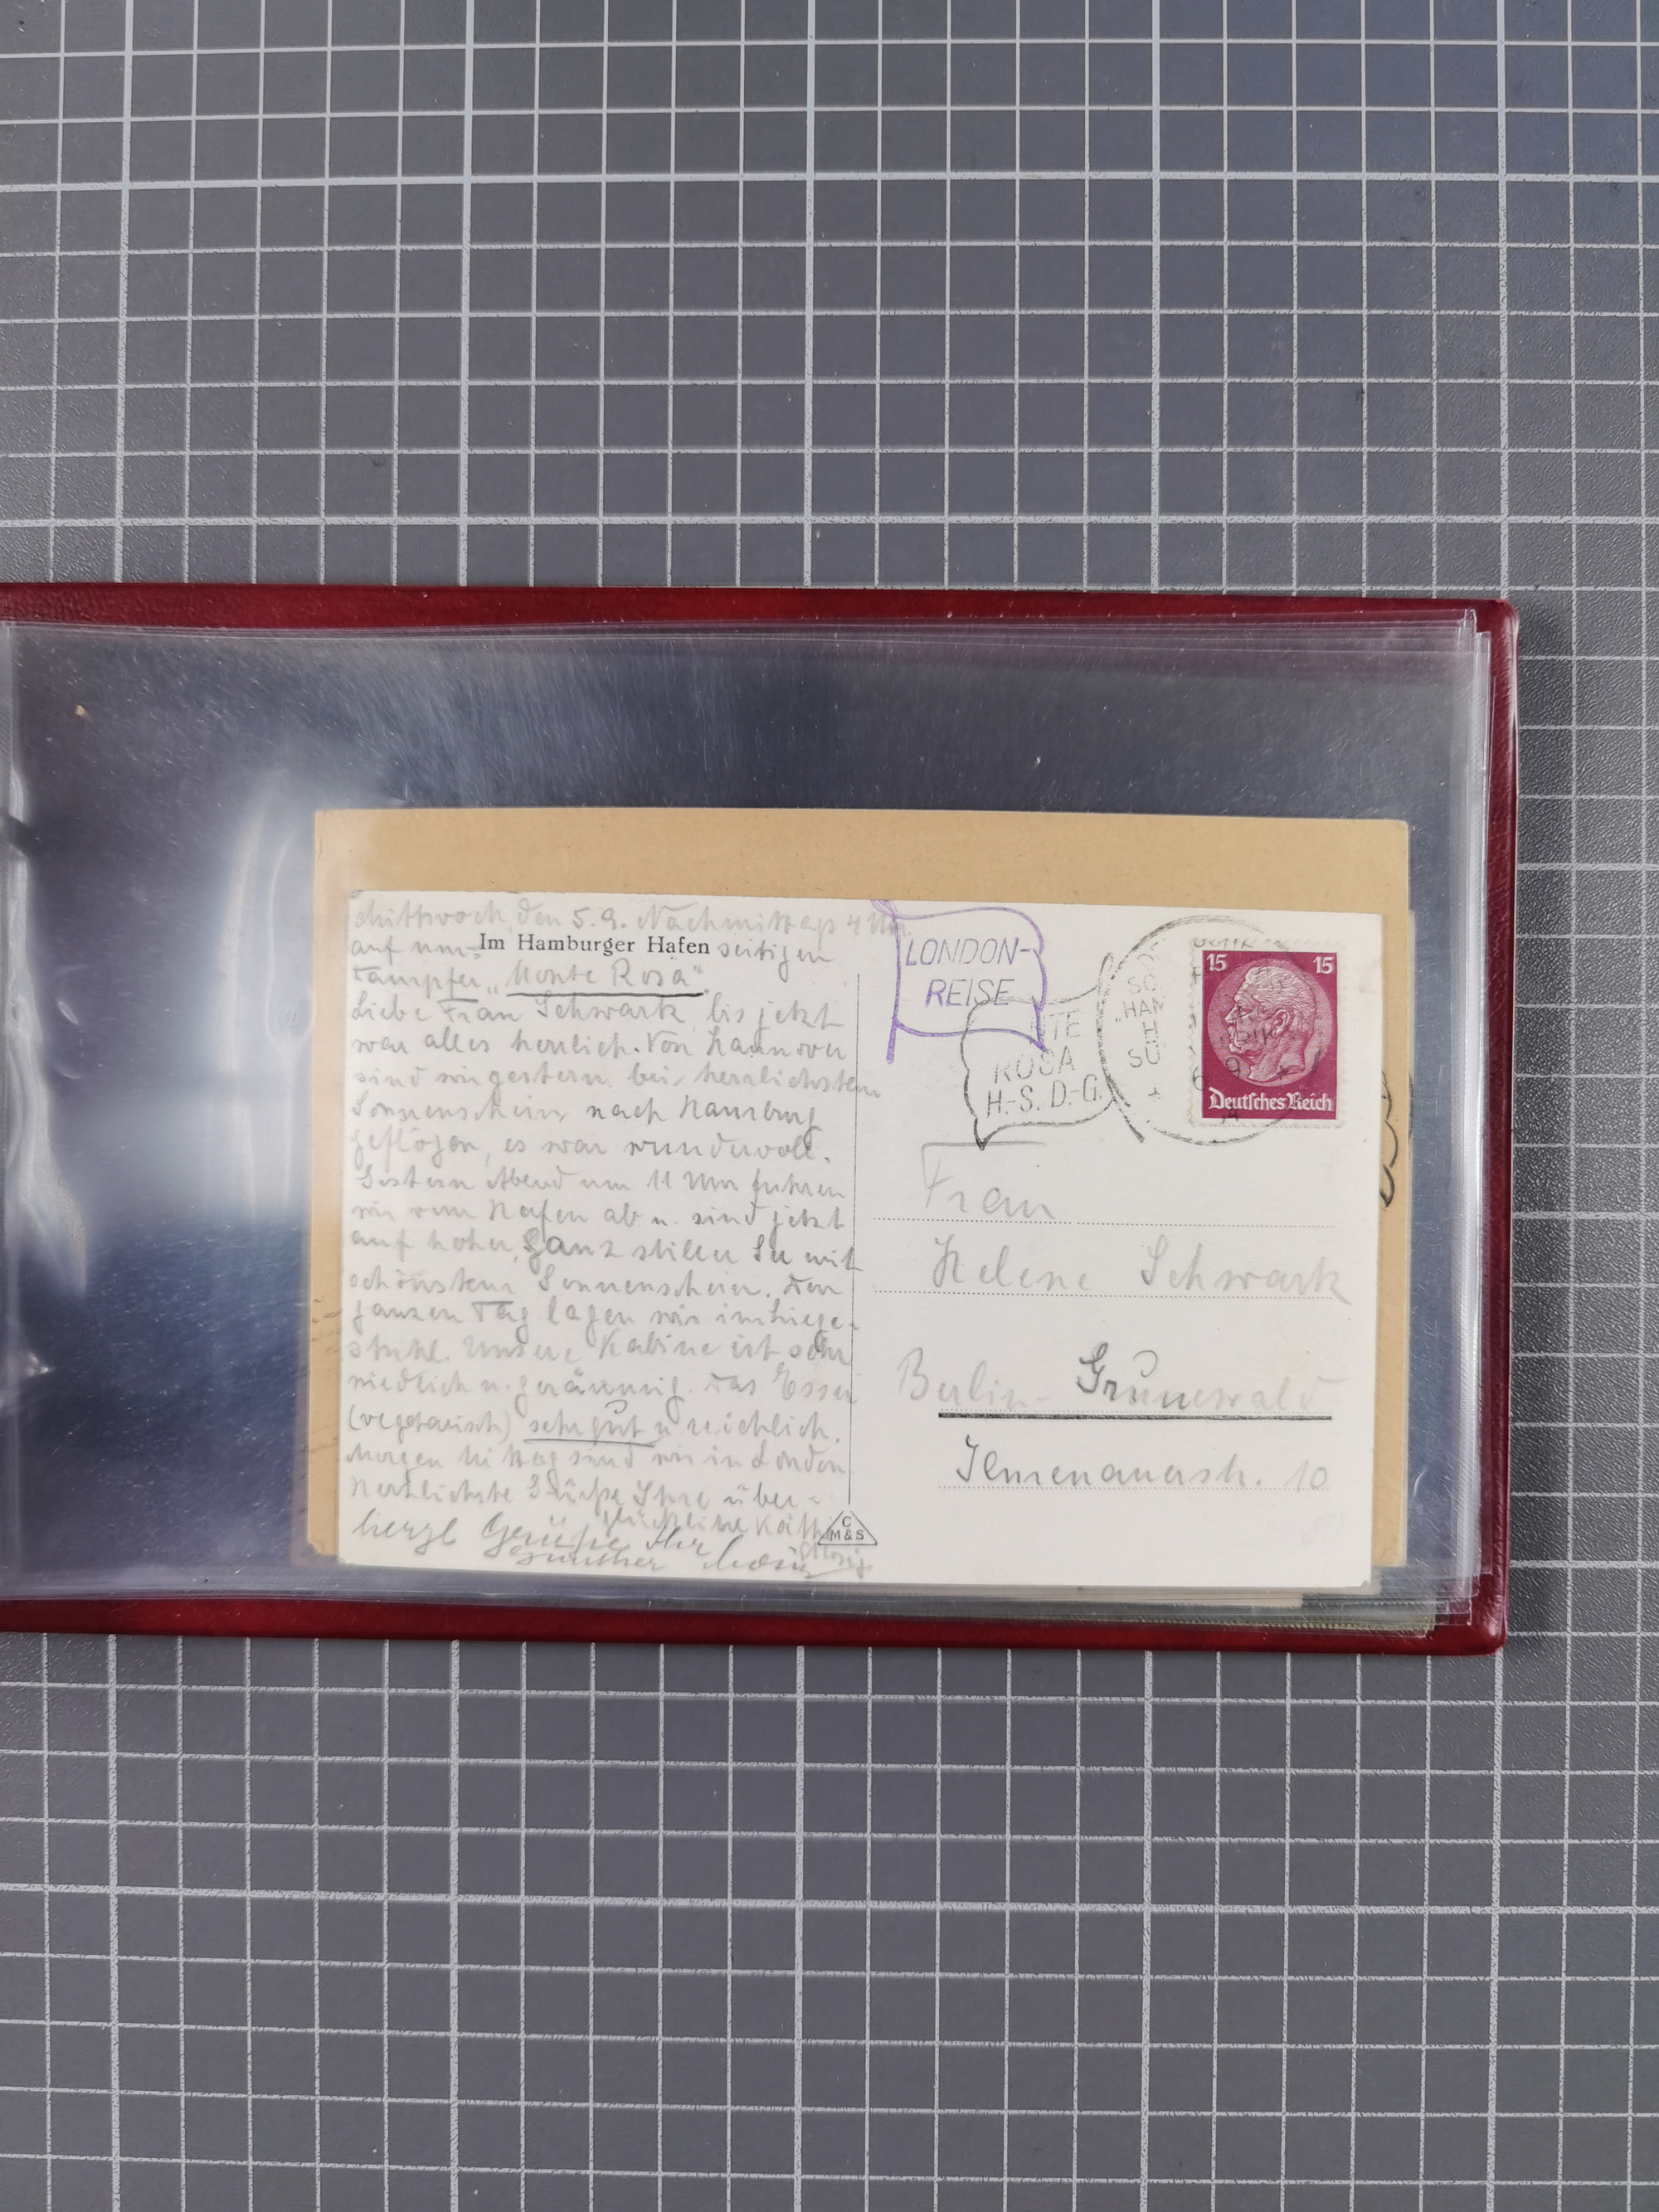 Mittwoch, den 5.9. Nachmittag 4 Uhr.
auf uns- Im Hamburger Hafen seitigen
Dampfer "Monte Rosa".
Liebe Frau Schwark, bis jetzt
war alles herrlich. Von Hannover
sind wir gestern bei herrlichstem
Sonnenschein nach Hamburg
geflogen, es war wundervoll.
Gestern Abend um 11 Uhr fuhren
wir vom Hafen ab u. sind jetzt
auf hoher, ganz stiller See mit
schönstem Sonnenschein. Den
ganzen Tag lagen wir im Liege-
stuhl. Unsere Kabine ist sehr
niedlich u. geräumig. Das Essen
(vegetarisch) sehr gut u. reichlich.
Morgen Mittag sind wir in London
Herzlichste Grüsse Ihre über-
glückliche Käthe
herzl Grüße Ihr
Günther
C
M & S
LONDON-
REISE
NTE
ROSA
H.-S. D.-G.
"HAM
SÜ
15 15
Deutsches Reich
Frau
Helene Schwark
Berlin-Grunewald
Ilmenauerstr. 10